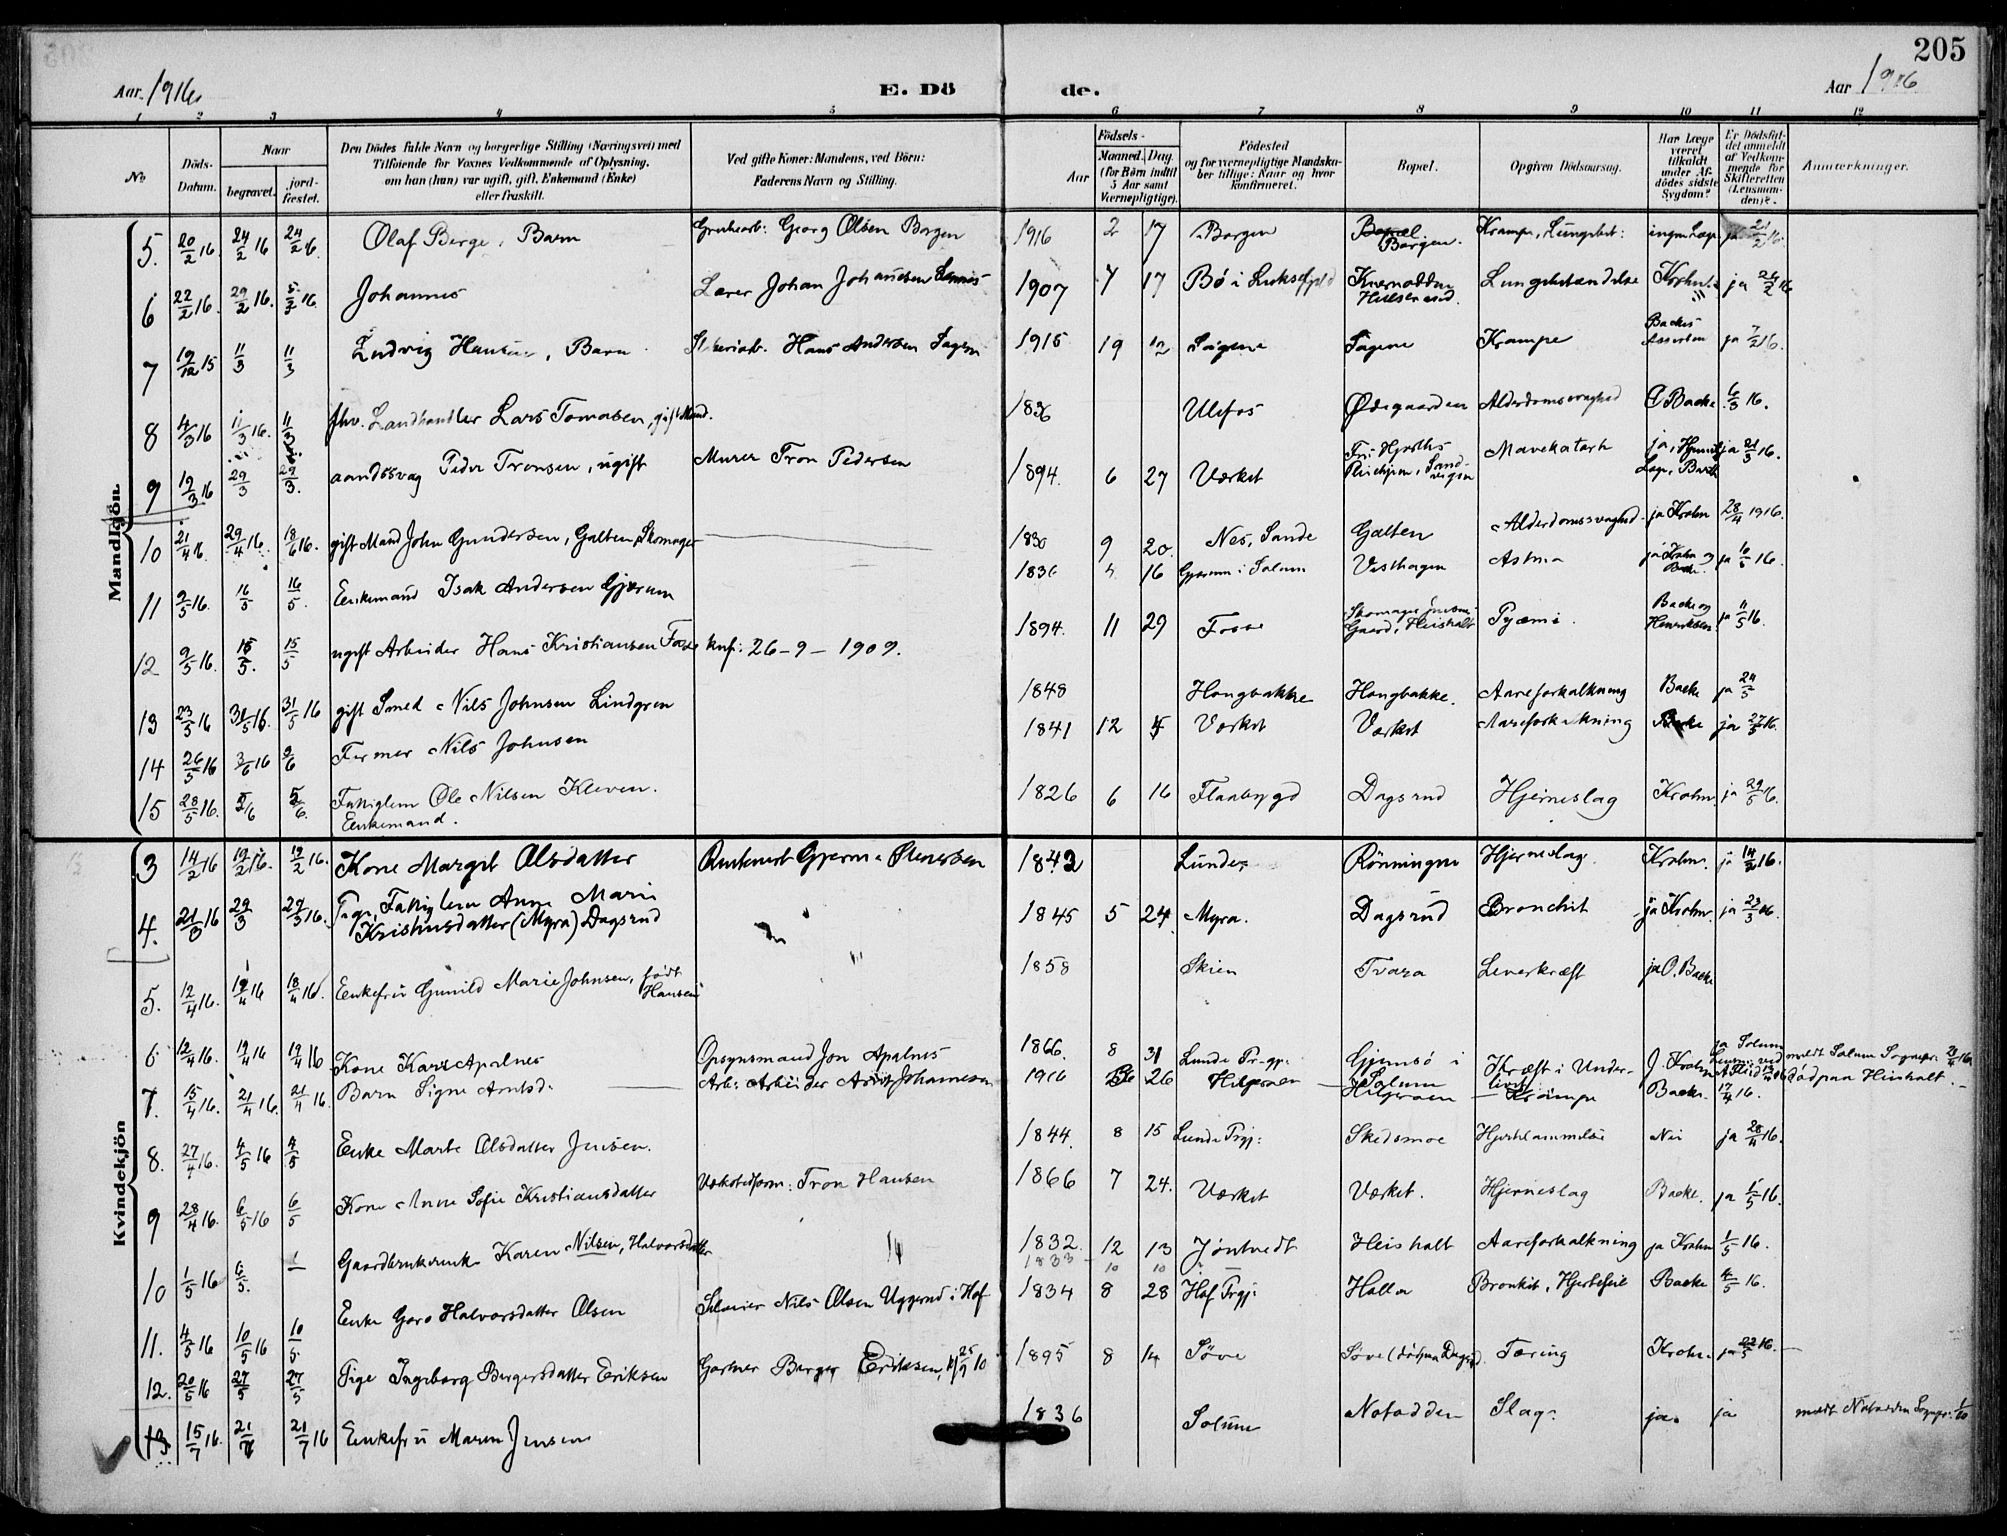 205
Aar 1916
E. Dö
de.
Aar 1916
1 2 3 4 5 6 7 8 9 10 11 12
№
Döds-
Datum.
Naar
begravet.
jord-
fæstet.
Den Dödes fulde Navn og borgerlige Stilling (Næringsvei) med
Tilföiende for Voxnes Vedkommende af Oplysning,
om han (hun) var ugift, gift, Enkemand (Enke)
eller fraskilt.
Ved gifte Koner: Mandens, ved Börn:
Faderens Navn og Stilling.
Födsels-
Aar
Maaned. Dag.
(for Börn indtil
5 Aar samt
Værnepligtige).
Födested
og for værnepligtige Mandska-
ber tillige: Naar og hvor
konfirmeret.
Bopæl.
Opgiven Dödsaarsag.
Har Læge
været
tilkaldt
under Af-
dödes sidste
Sygdom?
Er Dödsfal-
det anmeldt
af Vedkom-
mende for
Skifteretten
(Lensman-
den)?
Anmærkninger.
Mandkjön
5. 20/2 16. 24/2 16 24/2 16. Olaf Berge, Barn Georg Olsen Borgen 1916 2 17 Borgen Borgen. Krampe, ingen Læge ja 21/2 16
6 22/2 16. 29/2 16. 5/3 16 Johannes Lærer Johan Johansen 1907 7 17 Bø i Lungebetændelse Krohn. ja 24/2 16
7 19/12 15 11/3 11/3 Ludvig Hansen, Barn Hans Andersen Sagen 1915 19 12 Sagene Sagene Krampe ja 7/2 16.
8 4/3 16 11/3 16. 11/3 fhv. Landhandler Lars Tomasen, gift Mand. 1836 Ulefos Ødegaarden Alderdomssvaghed C Backe. 6/3 16.
9 19/3 16 29/3 29/3. aandssvag Peder Tronsen, ugift Murer Tron Pedersen 1894. 6 27 Værket Mavekatarh ja, ja 21/3 16.
10 21/4 16. 29/4 16. 18/6 16. gift Mand John Gundersen, Galten, Skomager 1830 9 20. Nes, Sande Galten Alderdomssvaghed ja Krohn 28/4 1916.
11 9/5 16. 16/5 16/5. Enkemand Isak Andersen Gjærum 1836 4 16 Gjærum i Solum Vesthagen Astma ja Krohn og Backe. ja 10/5 16.
12 9/5 16. 15/5. 15/5 ugift Arbeider Hans Kristiansen Fosse knf: 26-9-1909. 1894. 11 29 Fosse Gaard, Heishalt Pyæmi. Backe og Henriksen ja 11/5 16.
13 23/5 16 31/5 16. 31/5 16 gift Smed Nils Johnsen Lindgren 1848 Haugbakke Haugbakke. Aareforkalkning Backe ja 24/5
14 26/5 16 3/6 16 3/6 Former Nils Johnsen 1841 12 5 Værket Værket Aareforkalkning Backe ja 27/5 16.
15 28/5 16. 5/6 5/6. Fattiglem Ole Nilsen Kleven.
Enkemand. 1826 6 16 Flaabygd Dagsrud Hjerneslag Krohn. ja 29/5 16.
Kvindekjön
3 14/2 16 19/2 16. 19/2 16. Kone Margit Olsdatter Gjerm. Stenersen 1843 Lunde Rönningen Hjerneslag. Krohn. ja 14/2 16.
4. 21/3 16 29/3 29/3 16. Fattiglem Anne Marie
Kristensdatter (Myra) Dagsrud 1845 5 24. Myra. Dagsrud Bronchit ja Krohn. ja 23/3 16.
5. 12/4 16. 18/4 16 18/4 16. Enkefru Gunild Marie Johnsen, født
Hansen 1858 Skien Tvara Leverkræft ja O. Backe
6 12/4 16. 19/4 16 19/4 16 Kone Kari Apalnes Opsynsmand Jon Apalnes 1866. 8 31 Lunde Prgj. Gjemsö i
Solum Kræft i Under-
livet J. Krohn ja Solum meldt Solum Sognepr.
7. 15/4 16. 21/4 16. 21/4 16. Barn Signe Arntsd. Arbeider Arnt Johannesen 1916 26 Helgeraen Helgeraen Krampe Backe. 17/4 16. død paa Heishalt.
8. 27/4 16. 4/5 16 4/5 Enke Marte Olsdatter Jensen. 1844. 8 15 Lunde Prgj: Skedsmoe Hjertelammelse Nei ja 28/4 16.
9 28/4 16. 6/5 16 6/5 Kone Anne Sofie Kristiansdatter Tron Hansen 1866 7 24. Værket Værket. Hjerneslag Backe. ja 1/5 16.
10 1/5 16 6/5. — Gaardbrukerenke Karen Nilsen, Halvorsdatter 1832. 12 13 Jøntvedt Heishalt Aareforkalkning ja Krohn 1/5 16.
1833 10 10
11. 4/5 16 10/5 16 10/5 Enke Goro Halvorsdatter Olsen Nils Olsen Uggerud i Hof 1834 8 28 Hof Prgj: Holla Bronkit, Hjertefeil Backe 4/5 16.
12. 20/5 16 27/5 27/5 Pige Ingeborg Bergersdatter Eriksen Gartner Berger Eriksen, 25/9 10 1895 8 14 Søve Søve (død paa Dagsrud) Tæring Krohn. ja 22/5 16.
13 15/7 16. 21/7 21/7 16 Enkefru Maren Jensen 1836 Solum Notodden Slag. ja. ja meldt Notodden Sognepr. 1/10